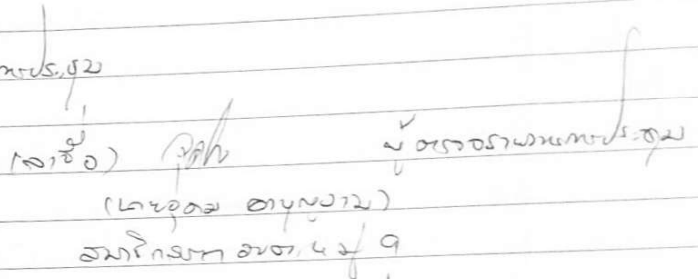 การประชุม
(ลงชื่อ) ผู้ตรวจรายงานการประชุม
(นายอุดม อาบุญงาม)
สมาชิกสภา อบต. หมู่ 9